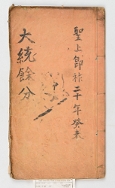 聖上卽祚二十年癸未
大統餘分